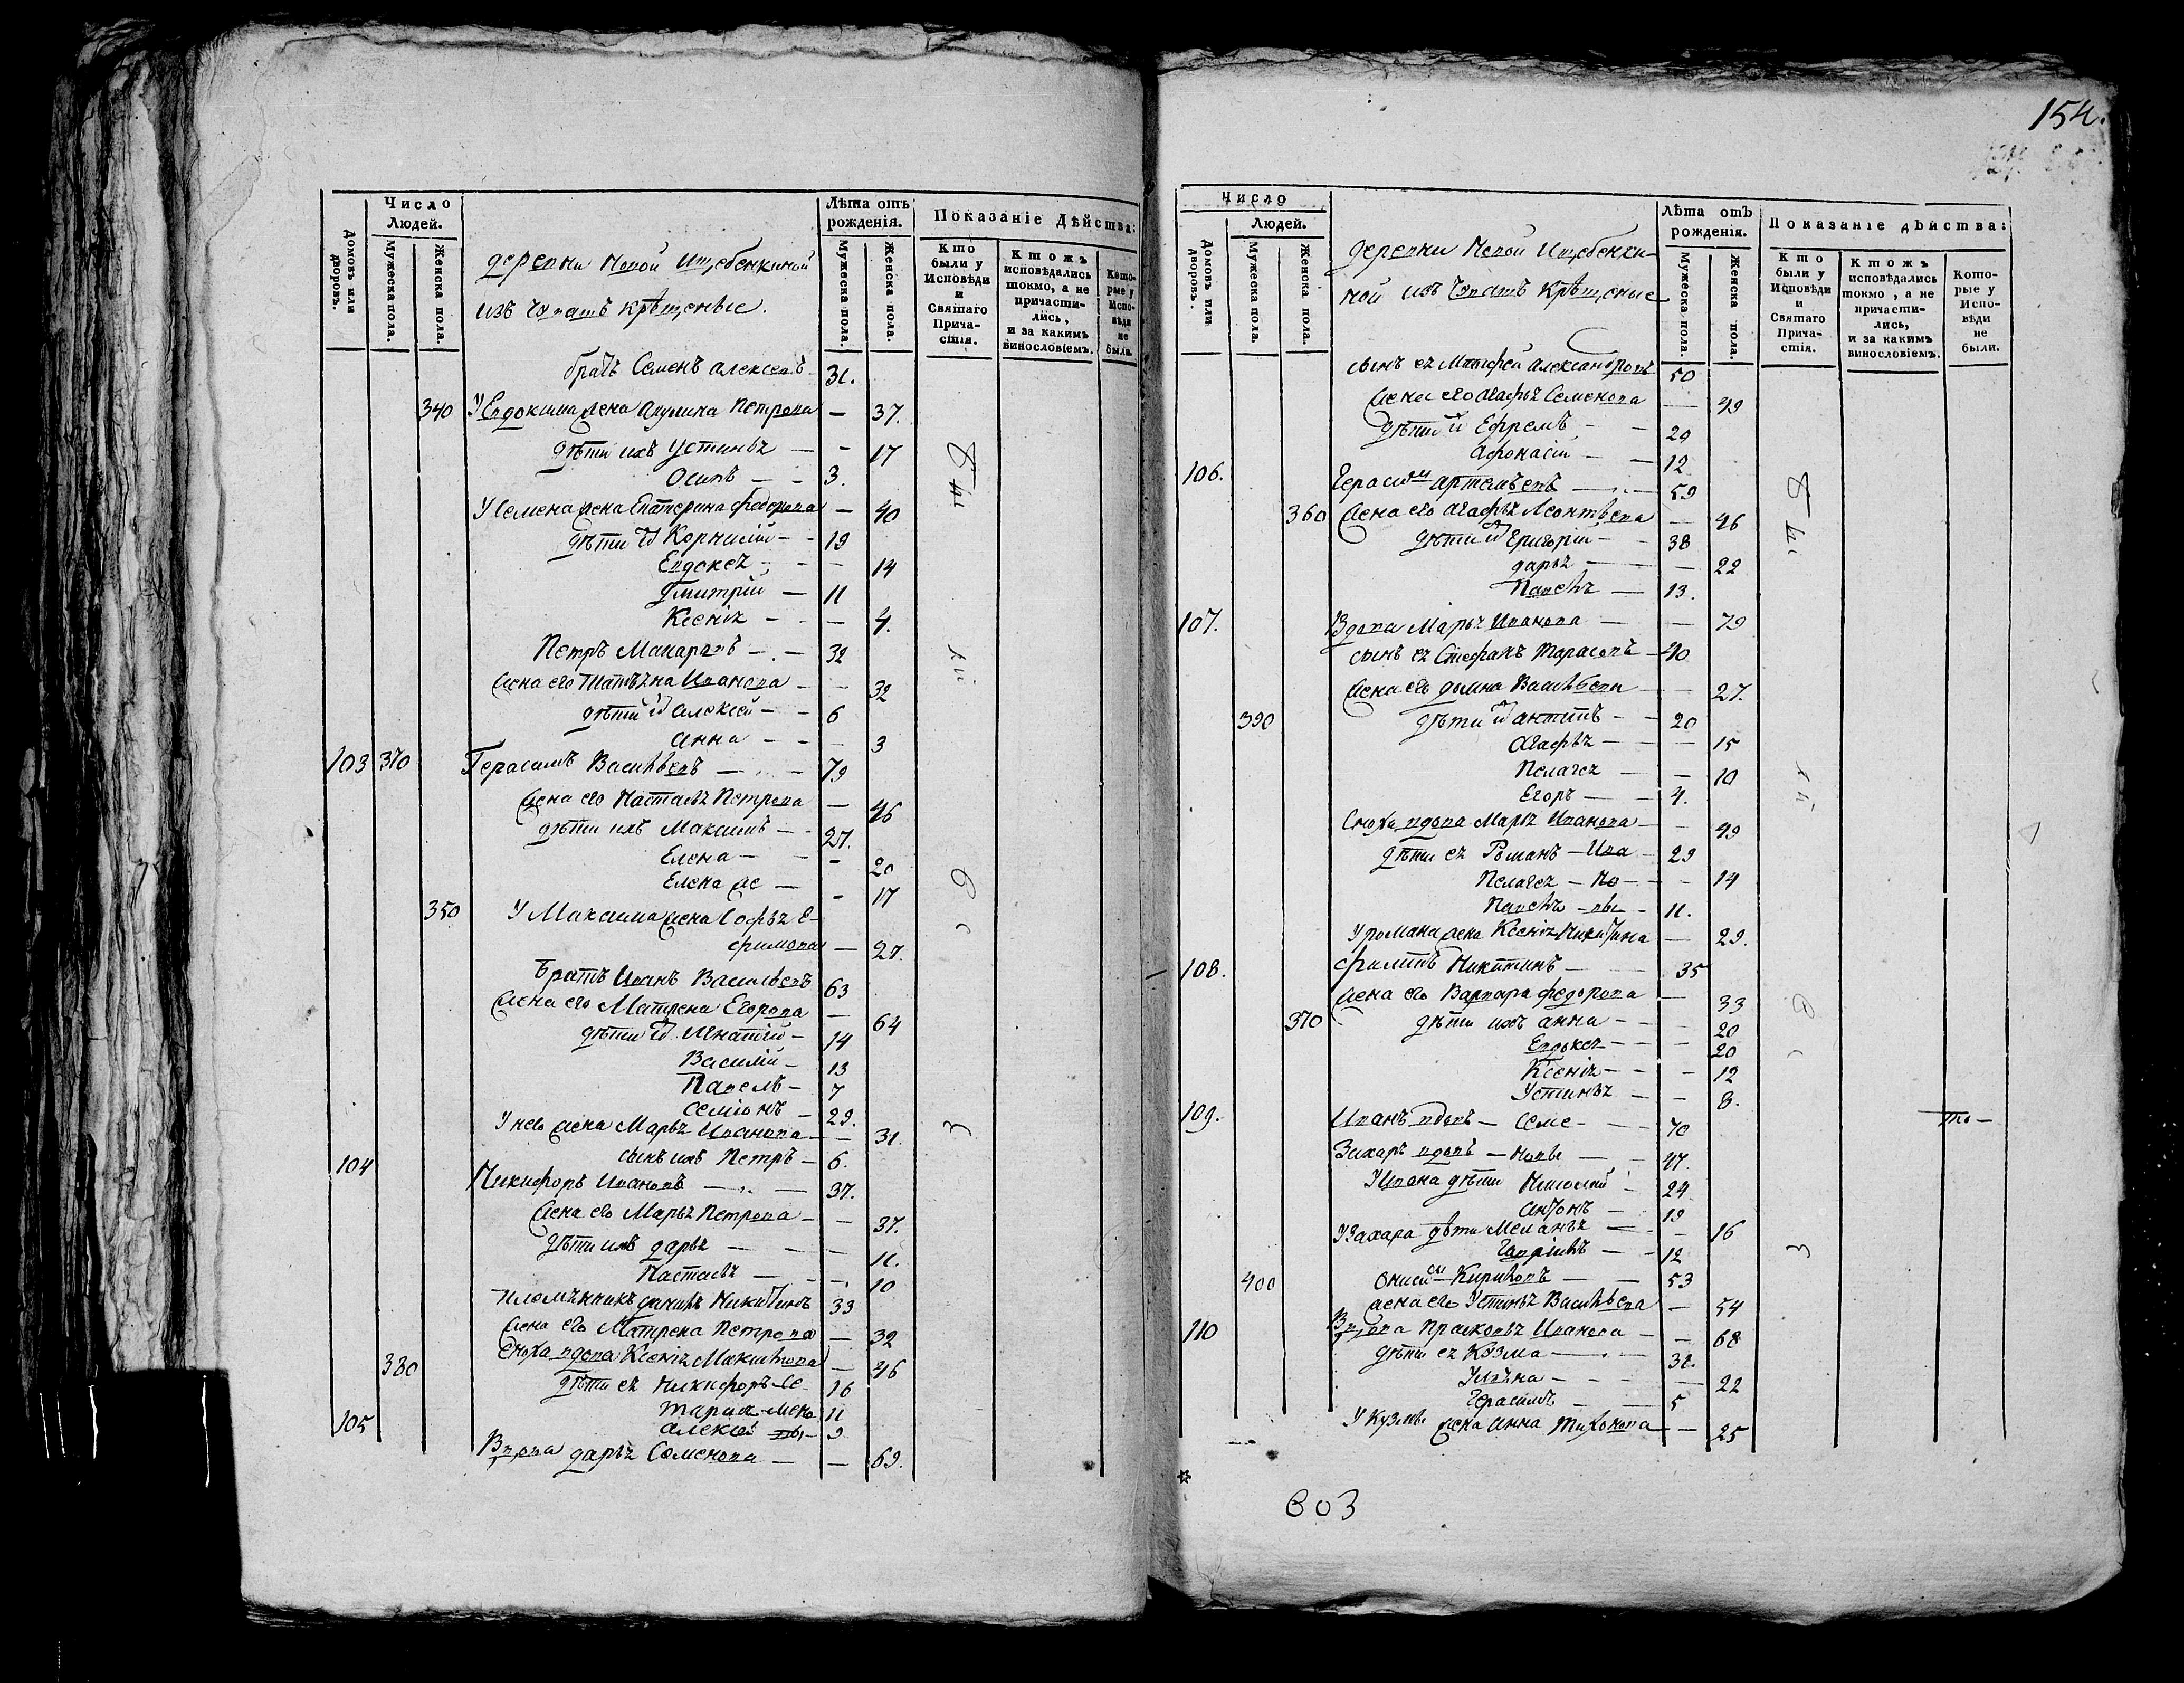 Число
Людей.
Домовъ или дворовъ.
Мужеска пола.
Женска пола.
деревни Новой Ищебенкиной
изъ Чувашъ крѣщеные.
Лѣта отъ рожденія.
Мужеска пола.
Женска пола.
Показаніе дѣйства:
Кто были у Исповѣди и Святаго Прича-стія.
Ктожъ исповѣдались токмо, а не причасти-лись, и за какимъ винословіемъ.
Кото-рые у Испо-вѣди не были.
братъ Семенъ алексеевъ 31.
340 У Евдокима жена Акулина Петрова — 37.
дѣти ихъ Устинья — — 17
Осипъ — 3.
У Семена жена Екатерина федорова — 40
дѣти их Корнилій — 19
Евдокея — — 14
Дмитрій — 11
Ксенія — — 4.
Петръ Макаровъ — 32
жена его Татьяна Иванова — 32
дѣти их алексей — 6
анна — — 3
103 370 Герасимъ Васильевъ — 79
жена его Настасья Петрова — 46
дѣти ихъ Максимъ — 27.
Елена — — 20
Елена же — — 17
350 У Максима жена Софья Е-
фимова — 27.
Братъ Иванъ Васильевъ 63
жена его Матрена Егорова — 64
дѣти их Игнатій — 14
Василій — 13
Павелъ — 7
Семіонъ — 29.
У нево жена Марья Иванова — 31.
сынъ ихъ Петръ — 6.
104 Никифоръ Ивановъ — 37.
жена его Марья Петрова — — 37.
дѣти ихъ дарья — — 11.
Настасья — — 10
племянникъ данилъ Никитинъ 33
жена его Матрена Петрова — 32
380 Сноха вдова Ксенія Макситова — 46
дѣти ея Никифоръ Се- 16
Тарас мено 11
алексей вы 9
105 Вдова дарья Семенова — — 69.
154.
Число
Людей.
Домовъ или дворовъ.
Мужеска пола.
Женска пола.
деревни Новой Ищебенки-
ной изъ Чувашъ Крѣщеные
Лѣта отъ рожденія.
Мужеска пола.
Женска пола.
Показаніе дѣйства:
Кто были у Исповѣди и Святаго Прича-стія.
Ктожъ исповѣдались токмо, а не причасти-лись, и за какимъ винословіемъ.
Кото-рые у Испо-вѣди не были.
сынъ ея Матфей Александровъ 50
жена его Агафья Семенова — 49
дѣти их Ефремъ — 29
Афонасій — 12
106. Герасим Артемьевъ — 59
360 жена его Агафья Леонтьева — 46
дѣти их Григорій — 38
дарья — — 22
Павелъ — 13.
107. Вдова Марья Иванова — — 79
сынъ ея Стефанъ Тарасовъ — 40
жена его домна Васильева — 27.
390 дѣти их антипъ — 20
Агафья — — 15
Пелагея — — 10
Егоръ — 4.
Сноха вдова Марья Иванова — — 49
дѣти ея Романъ — Ива — 29
Пелагея — но — — 14
Павелъ — вы — 11.
У романа жена Ксенія Никитина — 29.
108. филипъ Никитинъ — 35
жена его Варвара федорова — 33
370 дѣти ихъ анна — — 20
Евдокея — — 20
Ксенія — — 12
Устинья — — 8.
109. Иванъ вдовъ — Семе — 70 то —
Захаръ вдовъ — новы — 47.
У Ивана дѣти Николай — 24
антонъ — 19
У Захара дѣти Меланья — — 16
Гаврилъ — 12
400 Онисим Кириловъ — 53
жена его Устинья Васильева — 54
110 Вдова Прасковья Иванова — — 68
дѣти ея Козма — 31.
Ульяна — — 22
Герасимъ — 5
У Кузмы жена Анна Тихонова — 25
603